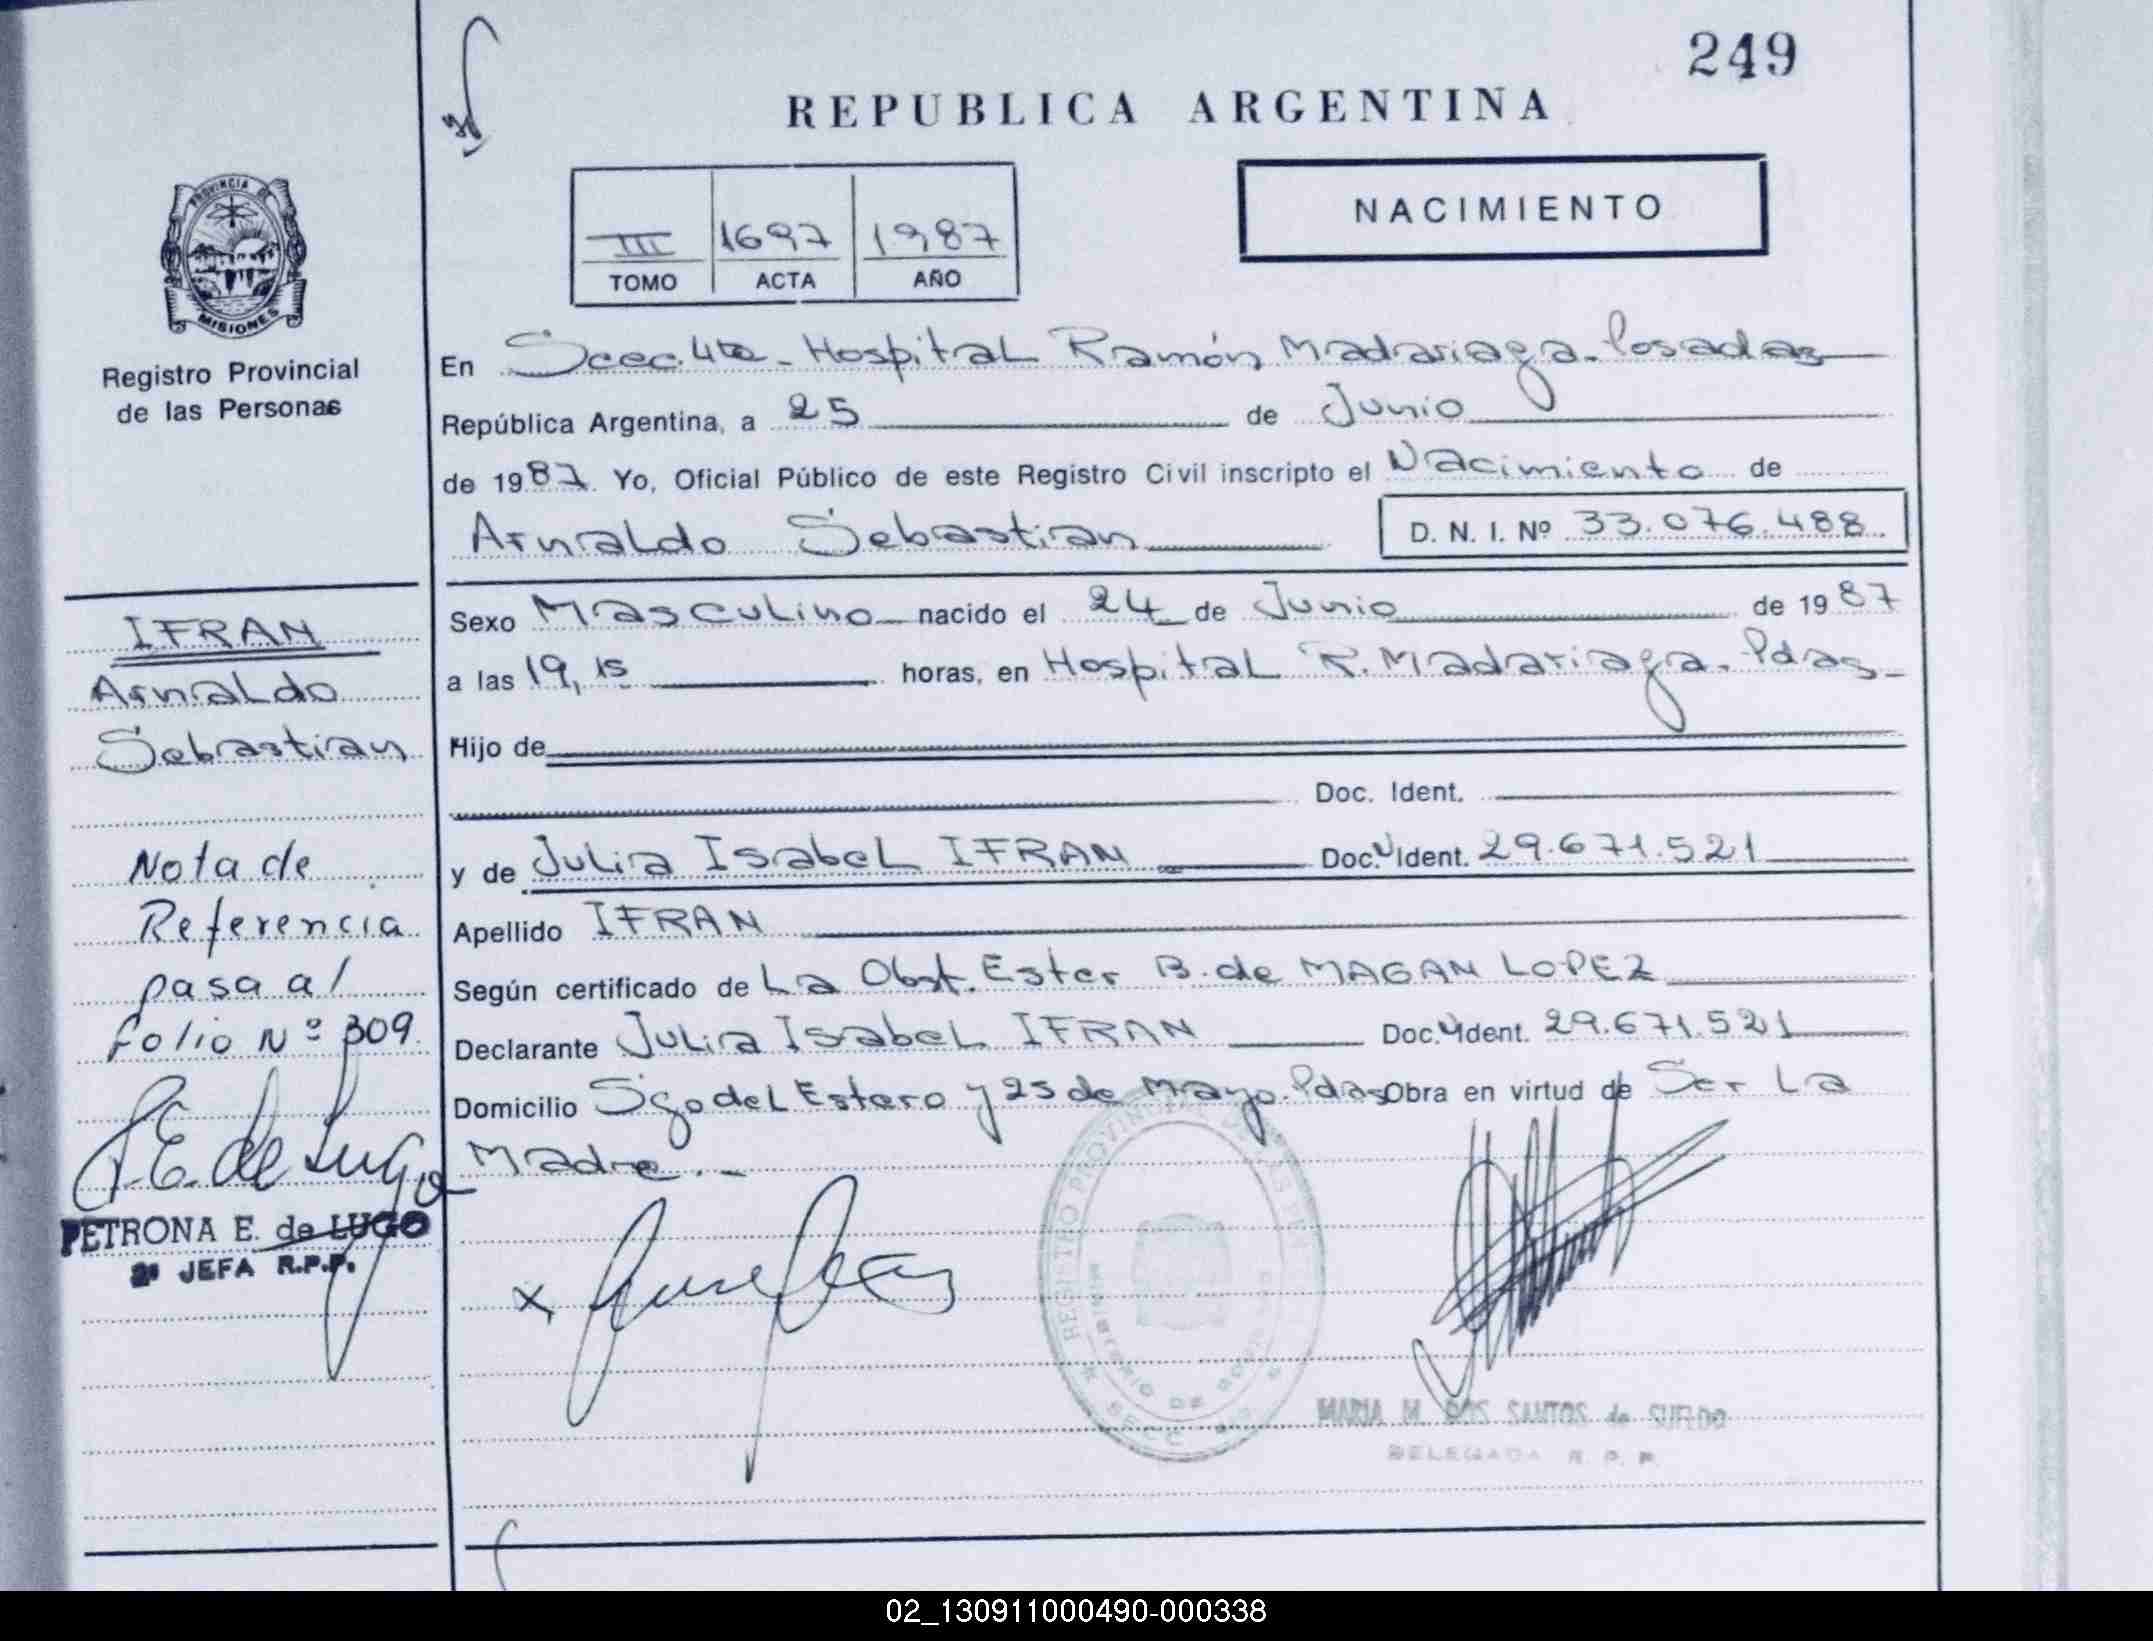 249
REPUBLICA ARGENTINA
NACIMIENTO
III 1697 1987
TOMO ACTA AÑO
PROVINCIA DE
MISIONES
Registro Provincial
de las Personas
En Secc. 4ta - Hospital Ramón Madariaga - Posadas
República Argentina, a 25 de Junio
de 1987. Yo, Oficial Público de este Registro Civil inscripto el Nacimiento de
Arnaldo Sebastian D. N. I. Nº 33.076.488
Sexo Masculino nacido el 24 de Junio de 1987
a las 19,15 horas, en Hospital R. Madariaga. Pdas
Hijo de
Doc. Ident.
y de Julia Isabel IFRAN Doc. Ident. 29.671.521
Apellido IFRAN
Según certificado de La Obst. Ester B. de MAGAN LOPEZ
Declarante Julia Isabel IFRAN Doc. Ident. 29.671.521
Domicilio Sgo del Estero y 25 de Mayo. Pdas Obra en virtud de Ser La
Madre.-
IFRAN
Arnaldo
Sebastian
Nota de
Referencia
pasa al
folio Nº 309
P.E. de Lugo
PETRONA E. de LUGO
2ª JEFA R.P.P.
x
REGISTRO PROVINCIAL DE LAS PER
MINISTERIO DE GOB
SECC
MARIA M. DOS SANTOS de SUELDO
DELEGADA R. P. P.
02_130911000490-000338